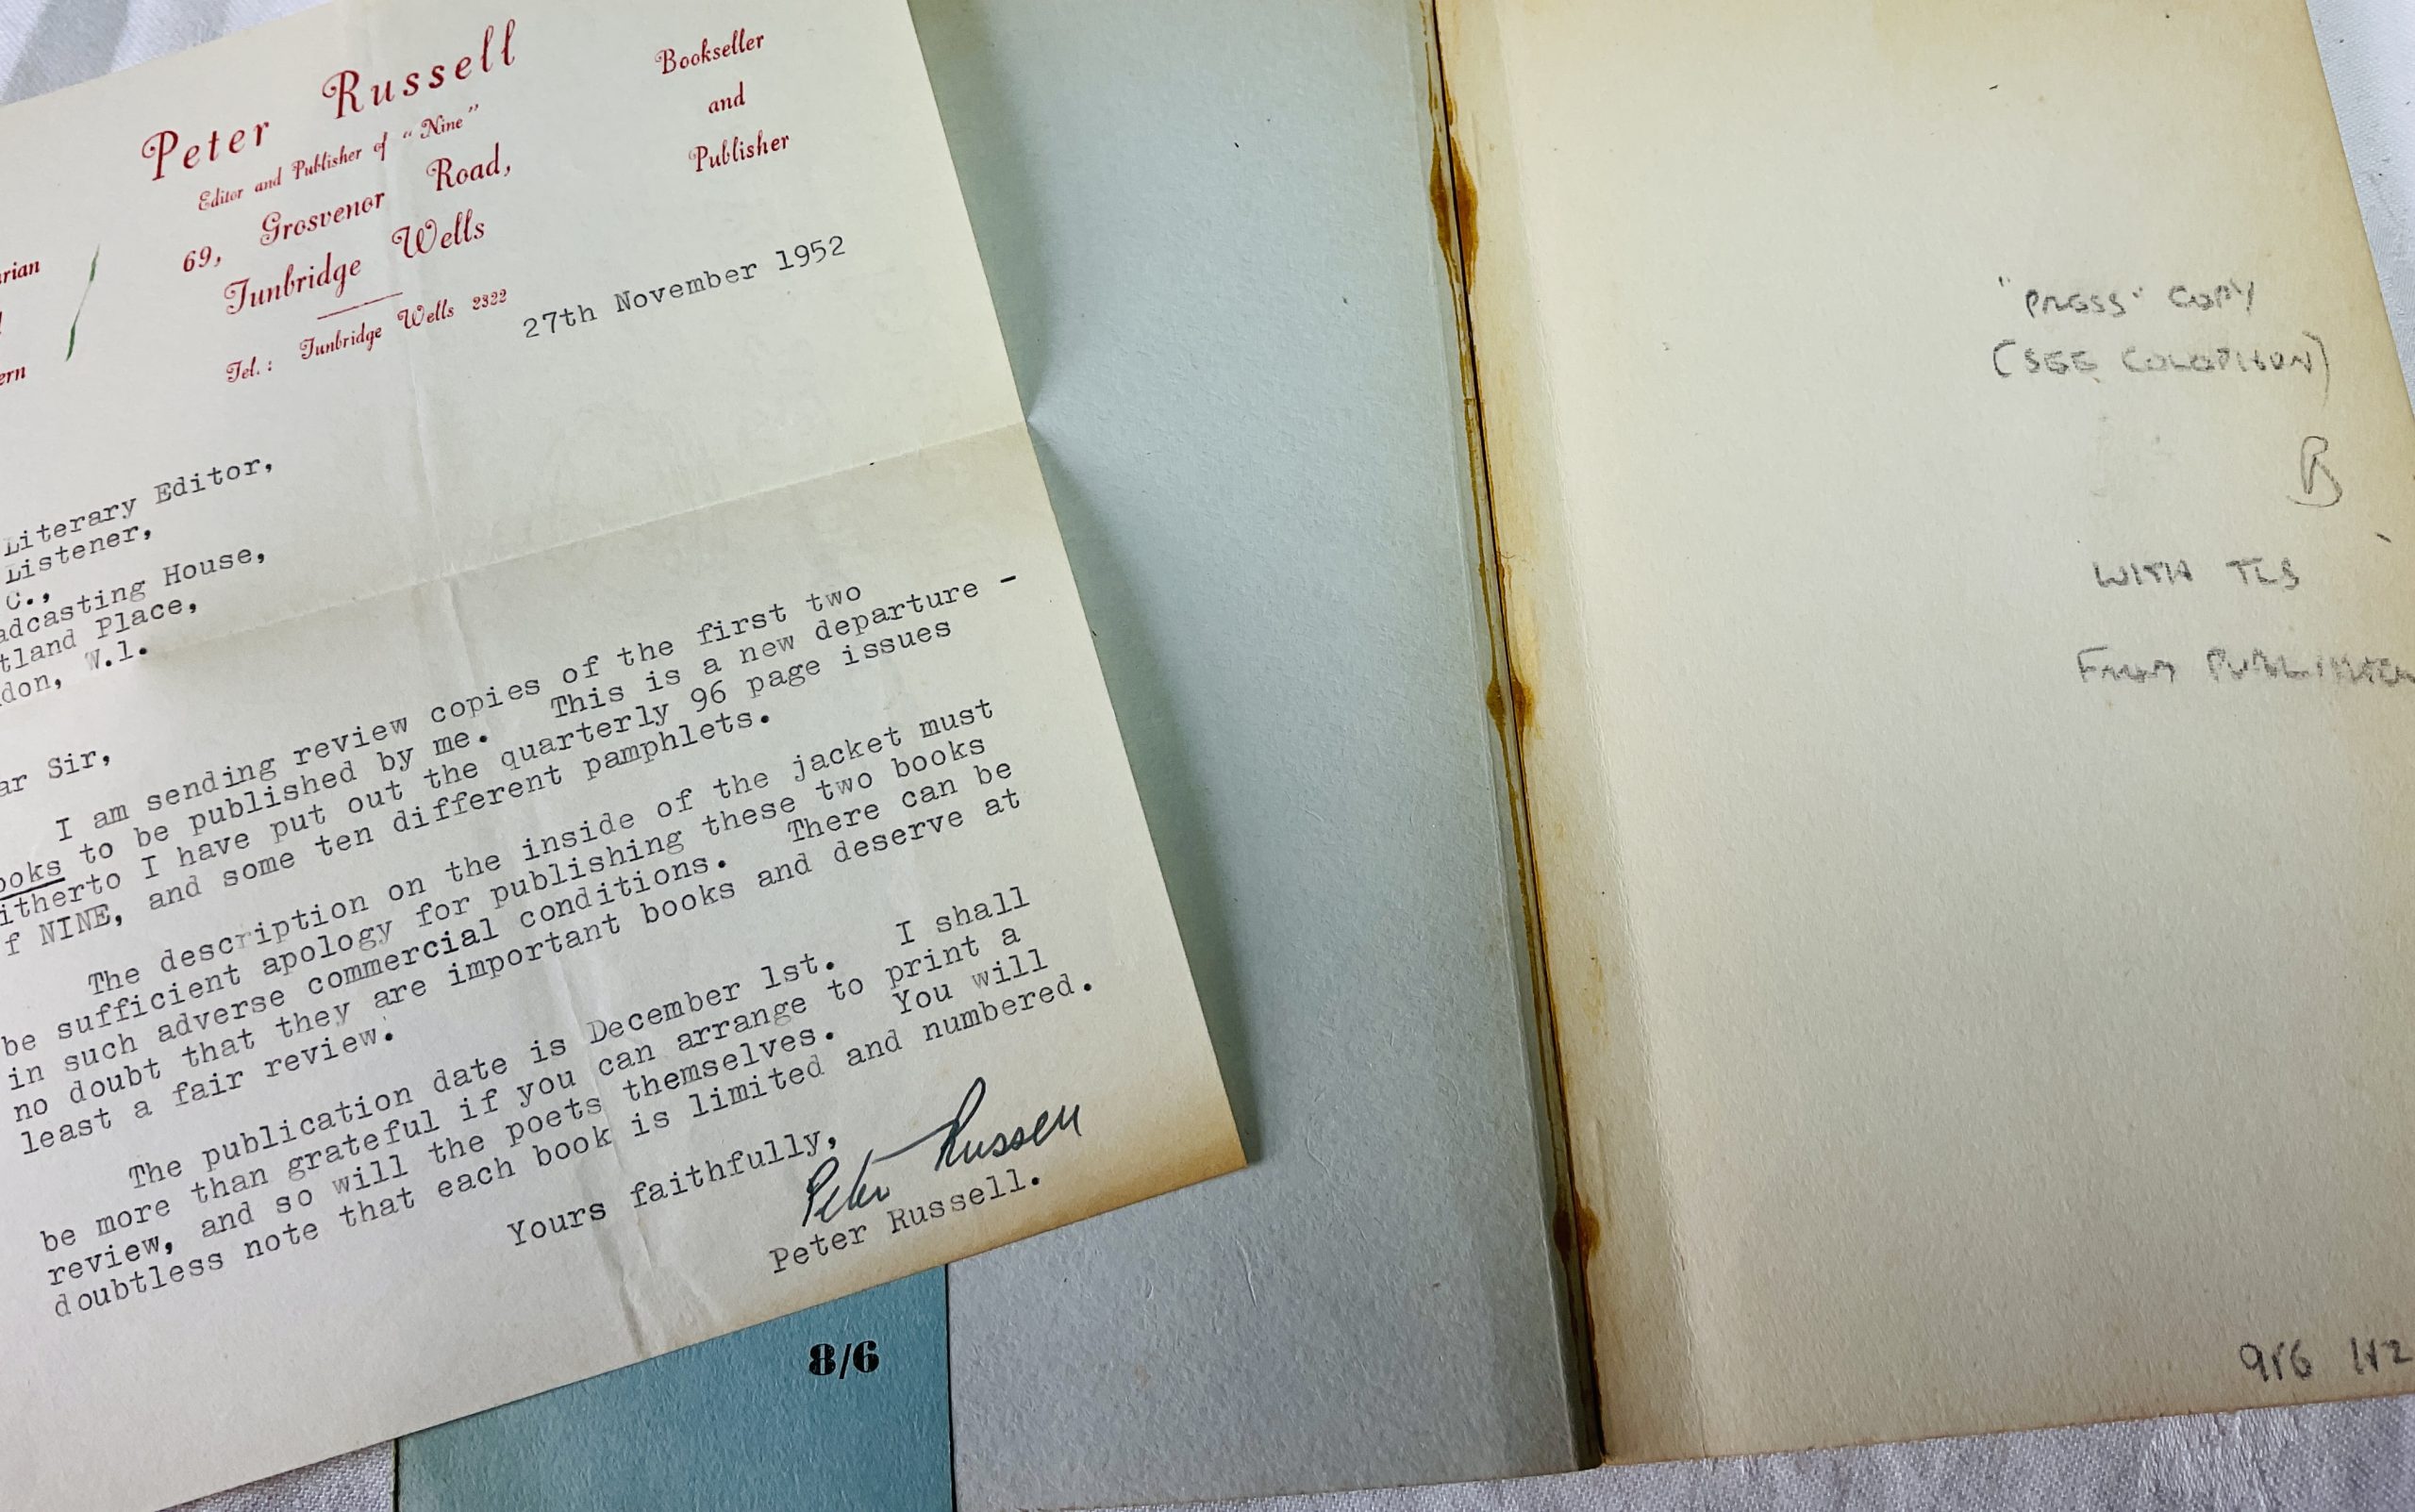 Peter Russell
Editor and Publisher of "Nine"
69, Grosvenor Road,
Tunbridge Wells
Tel.: Tunbridge Wells 2322
Bookseller
and
Publisher
rian
ern
27th November 1952
Literary Editor,
Listener,
C.,
adcasting House,
tland Place,
don, W.1.
ar Sir,
I am sending review copies of the first two
ooks to be published by me. This is a new departure -
itherto I have put out the quarterly 96 page issues
f NINE, and some ten different pamphlets.
The description on the inside of the jacket must
be sufficient apology for publishing these two books
in such adverse commercial conditions. There can be
no doubt that they are important books and deserve at
least a fair review.
The publication date is December 1st. I shall
be more than grateful if you can arrange to print a
review, and so will the poets themselves. You will
doubtless note that each book is limited and numbered.
Yours faithfully,
Peter Russell
Peter Russell.
8/6
"PRESS" COPY
(SEE COLOPHON)
WITH TLS
FROM PUBLISHER